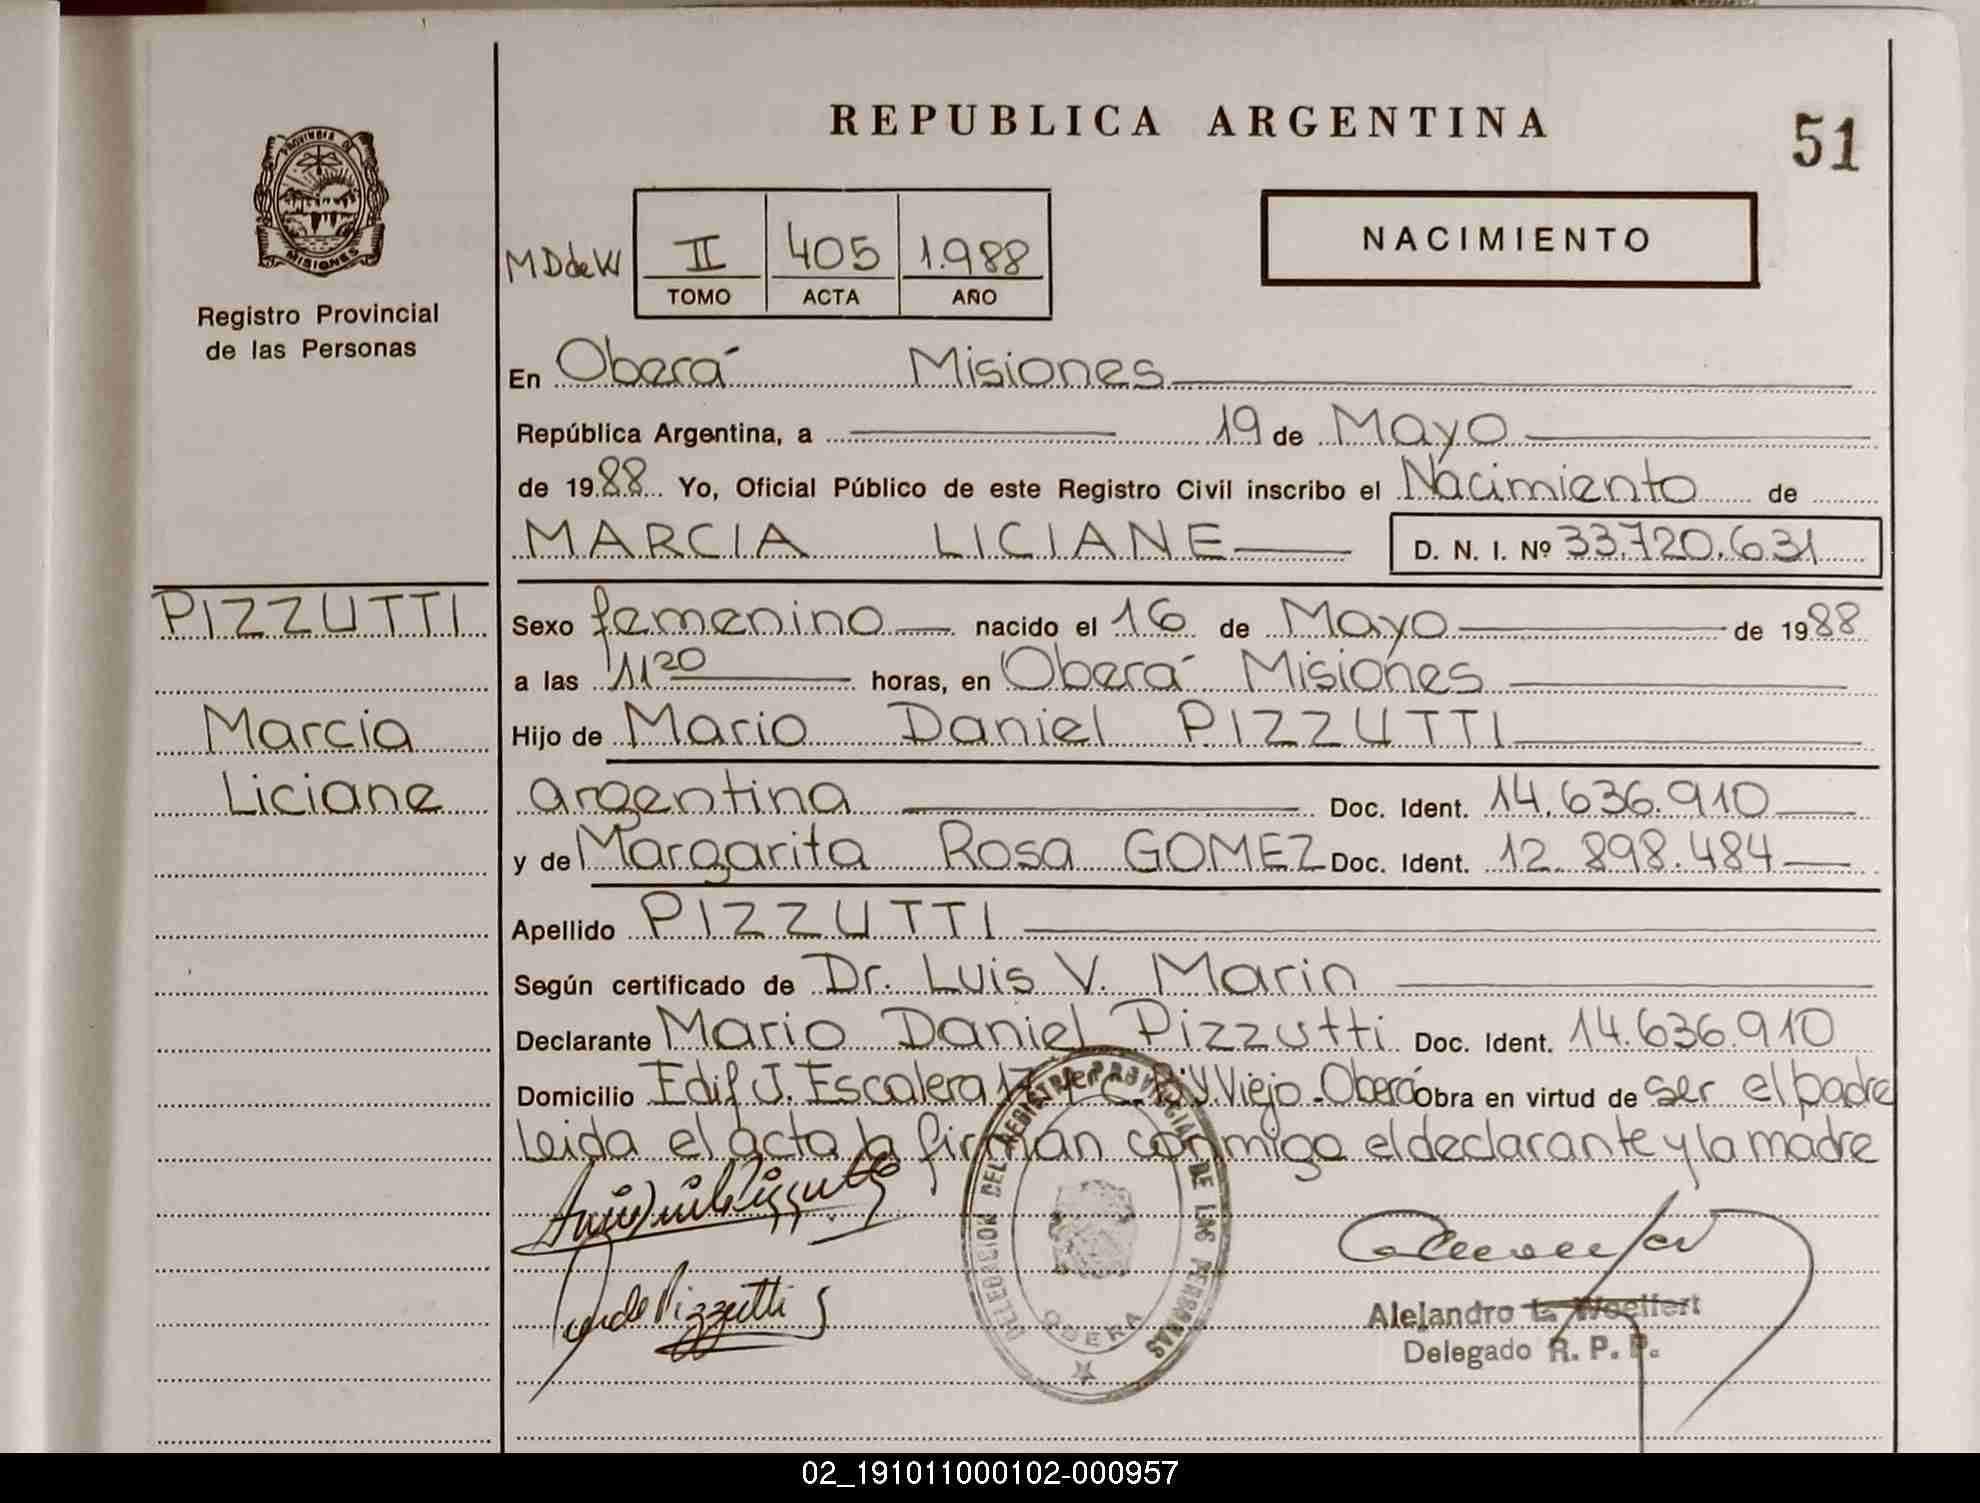 REPUBLICA ARGENTINA
51
PROVINCIA DE
MISIONES
Registro Provincial
de las Personas
MDdeW
II
405
1.988
TOMO
ACTA
AÑO
NACIMIENTO
En Oberá Misiones
República Argentina, a 19 de Mayo
de 1988 Yo, Oficial Público de este Registro Civil inscribo el Nacimiento de
MARCIA LICIANE D. N. I. Nº 33.720.631
PIZZUTTI
Marcia
Liciane
Sexo femenino nacido el 16 de Mayo de 1988
a las 11 20 horas, en Oberá Misiones
Hijo de Mario Daniel PIZZUTTI
argentina Doc. Ident. 14.636.910
y de Margarita Rosa GOMEZ Doc. Ident. 12.898.484
Apellido PIZZUTTI
Según certificado de Dr. Luis V. Marin
Declarante Mario Daniel Pizzutti Doc. Ident. 14.636.910
Domicilio Edif J. Escalera Viejo-Oberá Obra en virtud de ser el padre
Leida el acta la firman conmigo el declarante y la madre
DELEGACION DEL REGISTRO PROVINCIAL DE LAS PERSONAS
OBERA
de Pizzutti
Alejandro L. Woelfert
Delegado R. P. P.
02_191011000102-000957